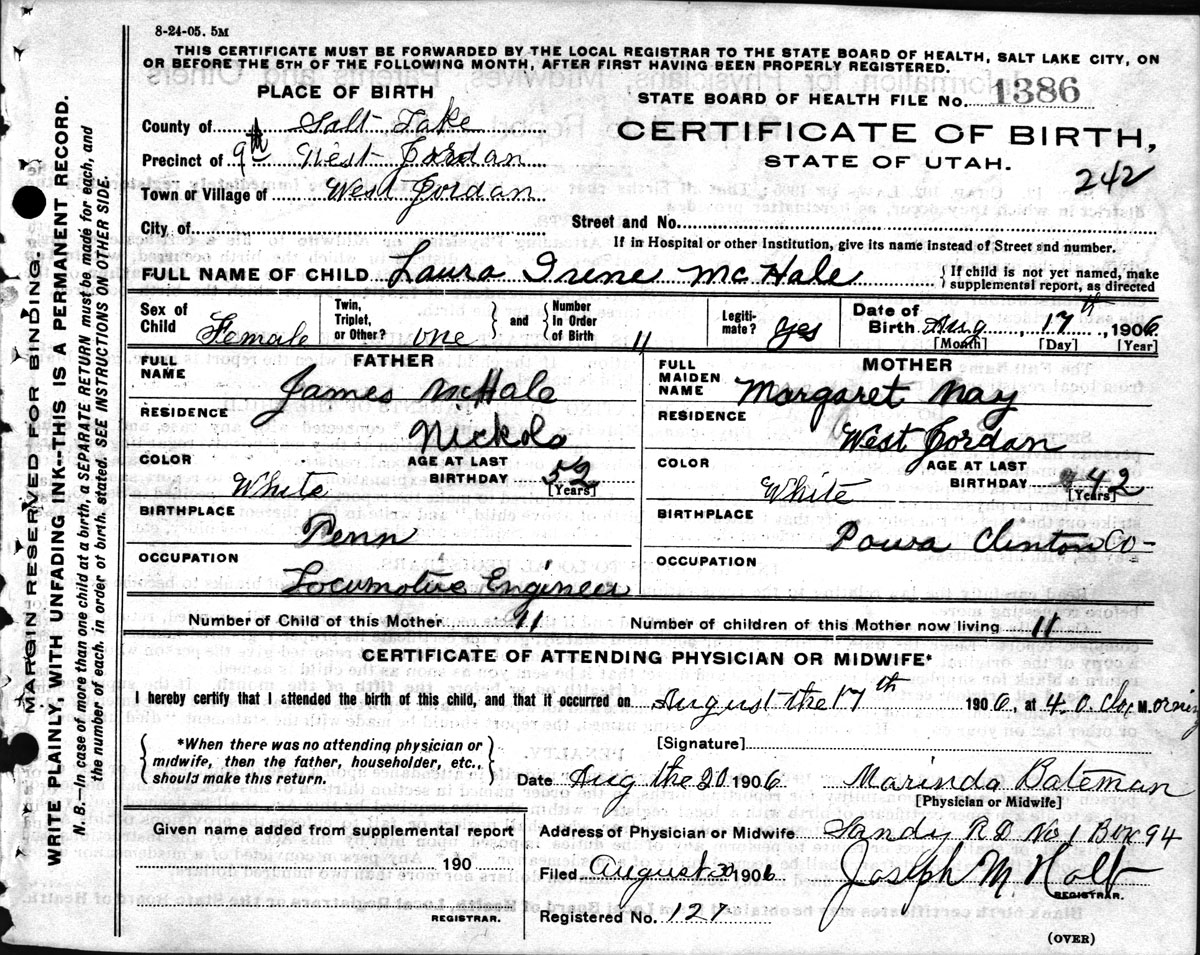 8-24-05. 5M
THIS CERTIFICATE MUST BE FORWARDED BY THE LOCAL REGISTRAR TO THE STATE BOARD OF HEALTH, SALT LAKE CITY, ON
OR BEFORE THE 5TH OF THE FOLLOWING MONTH, AFTER FIRST HAVING BEEN PROPERLY REGISTERED.
PLACE OF BIRTH
STATE BOARD OF HEALTH FILE No. 1386
County of Salt Lake
CERTIFICATE OF BIRTH,
Precinct of 9th West Jordan
STATE OF UTAH.
242
Town or Village of West Jordan
City of
Street and No.
If in Hospital or other Institution, give its name instead of Street and number.
FULL NAME OF CHILD Laura Irene McHale
{ If child is not yet named, make
supplemental report, as directed
Sex of Child Female
Twin, Triplet, or Other? one } and { Number In Order of Birth 11
Legitimate? yes
Date of Birth Aug, 17th, 1906
[Month] [Day] [Year]
FATHER
FULL NAME James McHale
RESIDENCE Nickols
COLOR White
AGE AT LAST BIRTHDAY 52
[Years]
BIRTHPLACE Penn
OCCUPATION Locomotive Engineer
MOTHER
FULL MAIDEN NAME Margaret Nay
RESIDENCE West Jordan
COLOR White
AGE AT LAST BIRTHDAY 42
[Years]
BIRTHPLACE Clinton Co-
OCCUPATION
Number of Child of this Mother 11
Number of children of this Mother now living 11
CERTIFICATE OF ATTENDING PHYSICIAN OR MIDWIFE*
I hereby certify that I attended the birth of this child, and that it occurred on August the 17th 1906, at 4.0 M.
{ *When there was no attending physician or
midwife, then the father, householder, etc.,
should make this return. }
[Signature]
Date Aug the 20 1906 Marinda Bateman
[Physician or Midwife]
Given name added from supplemental report
190
REGISTRAR.
Address of Physician or Midwife Sandy R D No 1 Box 94
Filed August 1906 Joseph M. Holt
REGISTRAR.
Registered No. 127
(OVER)
MARGIN RESERVED FOR BINDING.
WRITE PLAINLY, WITH UNFADING INK--THIS IS A PERMANENT RECORD.
N. B.—In case of more than one child at a birth, a SEPARATE RETURN must be made for each, and
the number of each, in order of birth, stated. SEE INSTRUCTIONS ON OTHER SIDE.